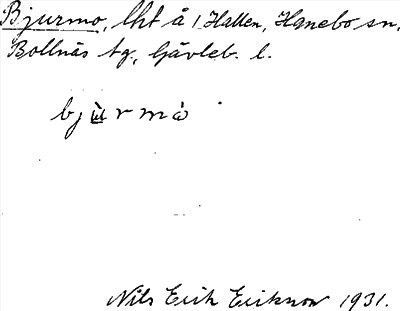 Bjurmo, lht å 1 Hallen, Hanebo sn,
Bollnäs tg., Gävleb. l.
bjùrmà
Nils Erik Eriksson 1931.